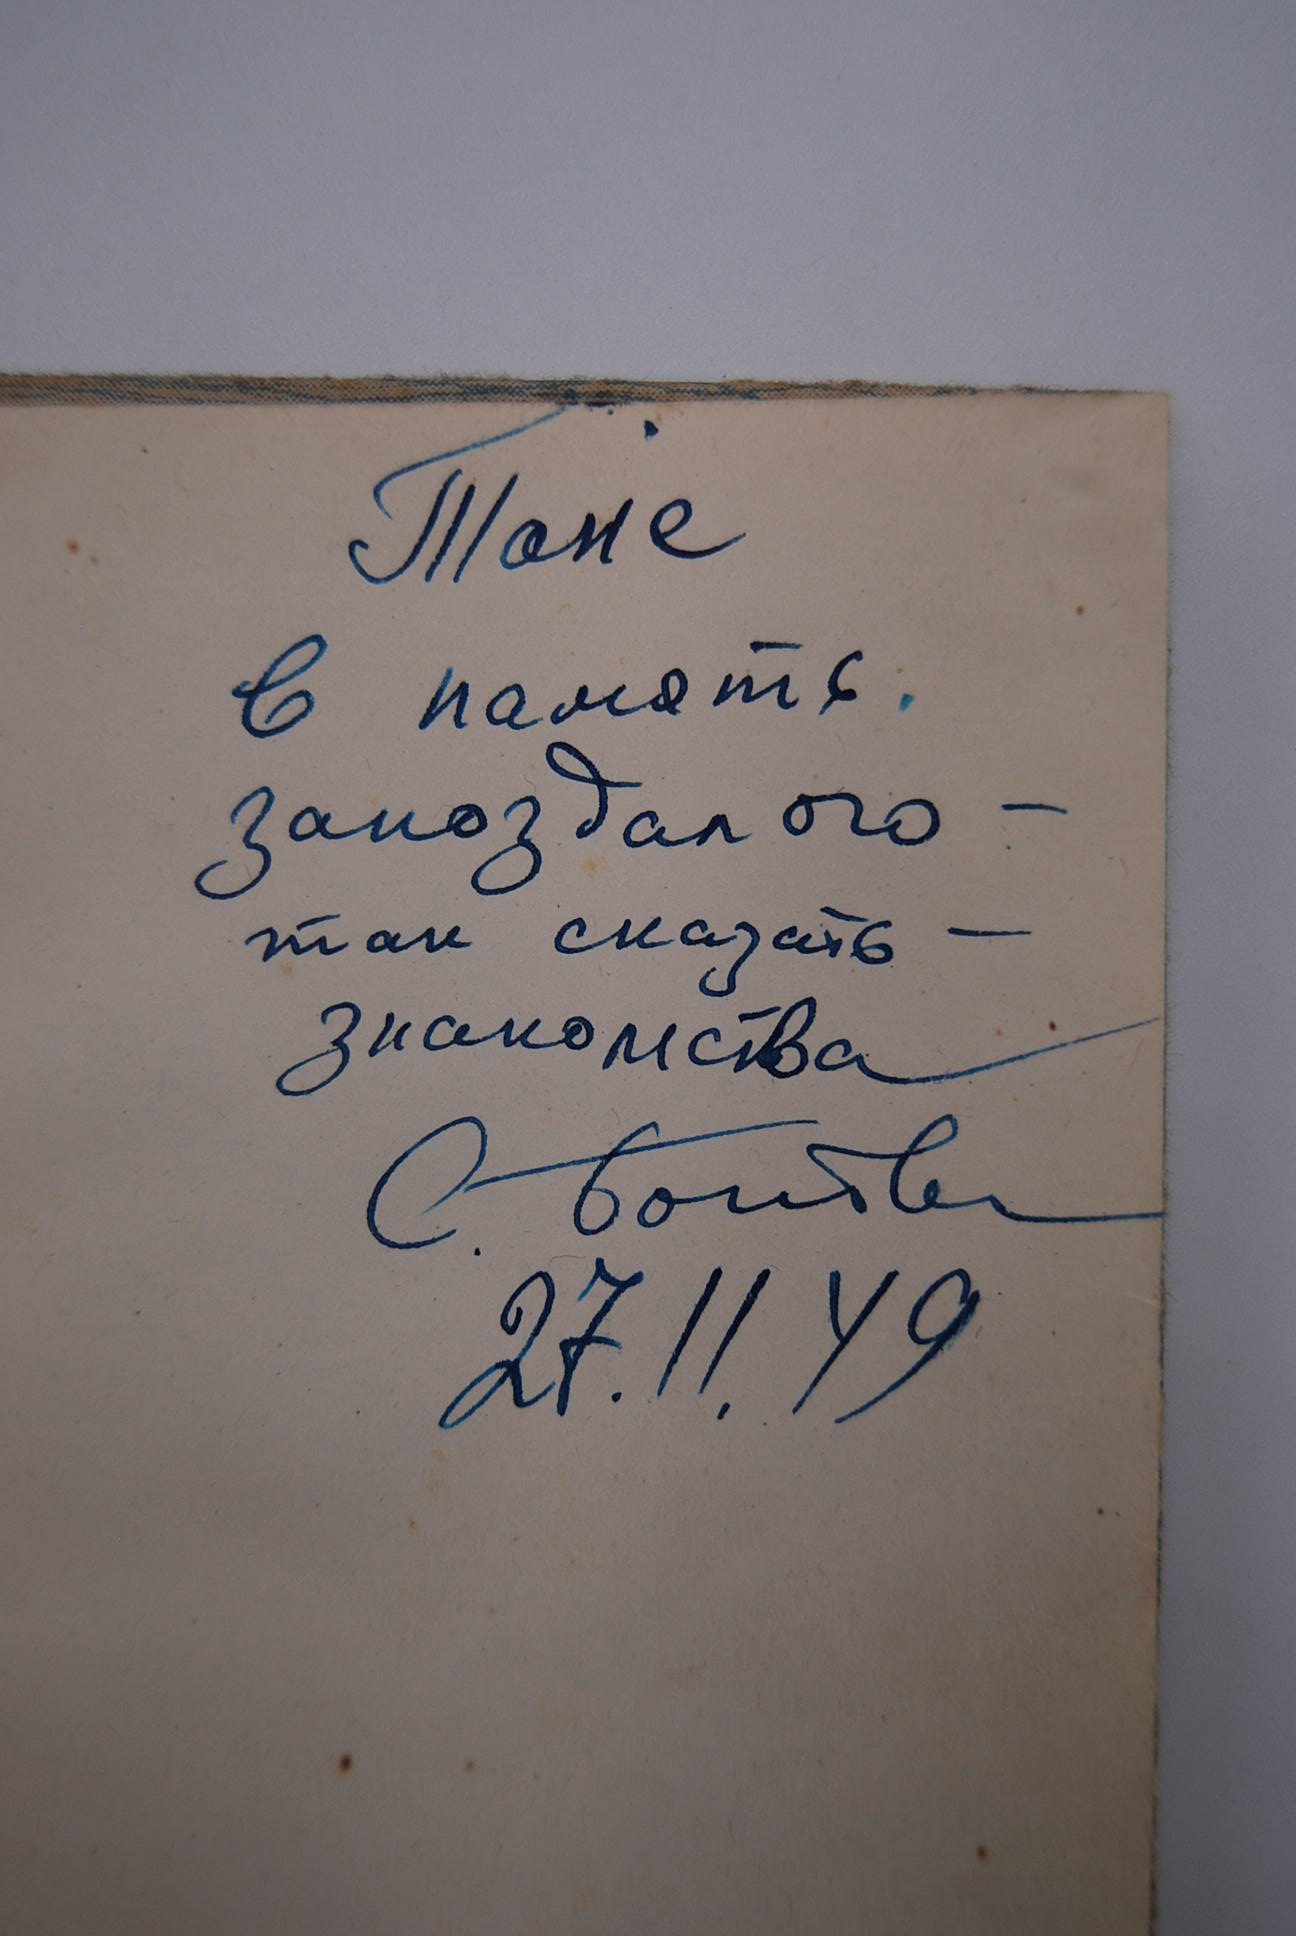 Тоне
в память
запоздалого —
так сказать —
знакомства
С.
27.11.49